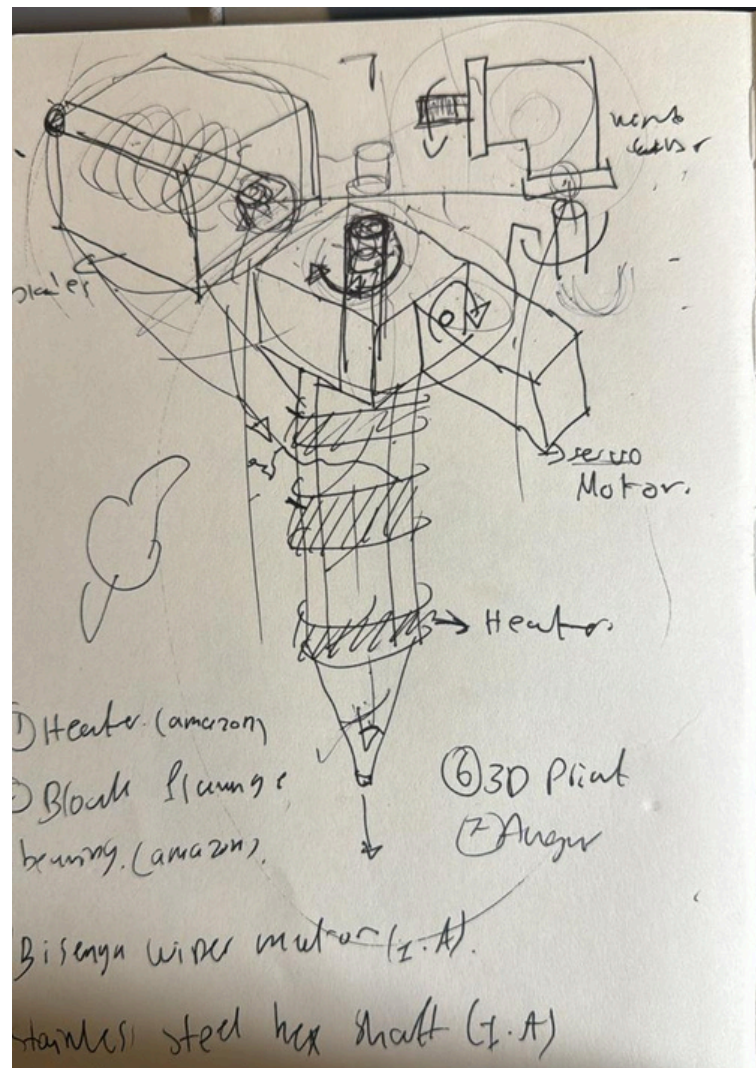 servo
Motor.
Heater
① Heater (amazon)
Block flange
bearing. (amazon).
⑥ 3D Print
⑦ Auger
motor (I.A).
stainless steel hex shaft (I.A)